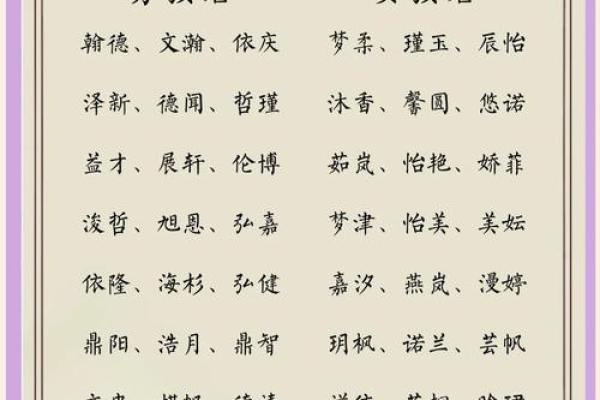 翰德、文瀚、依庆 梦柔、瑾玉、辰怡
泽新、德闻、哲瑾 沐香、馨圆、悠诺
益才、展轩、伦博 茹岚、怡艳、娇菲
浚哲、旭恩、弘嘉 梦津、怡美、美妘
依隆、海杉、弘健 嘉汐、燕岚、漫婷
鼎阳、浩月、鼎智 玥枫、诺兰、芸帆